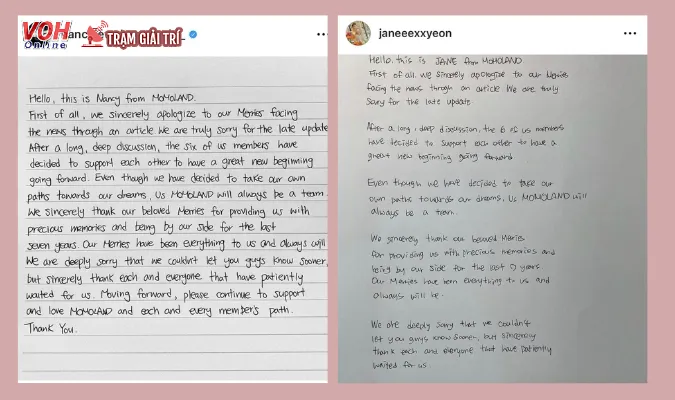 VOH
Online
TRẠM GIẢI TRÍ
Hello, this is Nancy from MOMOLAND.
First of all, we sincerely apologize to our Merries facing
the news through an article We are truly sorry for the late update
After a long, deep discussion, the six of us members have
decided to support each other to have a great new beginning
going forward. Even though we have decided to take our own
paths towards our dreams, Us MOMOLAND will always be a team.
We sincerely thank our beloved Merries for providing us with
precious memories and being by our side for the last
seven years. Our Merries have been everything to us and always will
We are deeply sorry that we couldn't let you guys know sooner,
but sincerely thank each and everyone that have patiently
waited for us. Moving forward, please continue to support
and love MOMOLAND and each and every member's path.
Thank You.
janeeexxyeon
Hello. this is JANE from MOMOLAND
First of all. we sincerely apologize to our Merries
facing the news through an article We are truly
Sorry for the late update
After a long, deep discussion, the 6 of us members
have decided to support each other to have a
great new beginning going forward
Even though we have decided to take our
own paths towards our dreams, Us MOMOLAND will
always be a team.
We sincerely thank our beloved Merries
for providing us with precious memories and
being by our side for the last 7 years
Our Merries have been everything to us and
always will be.
We are deeply sorry that we couldn't
let you guys know sooner, but sincerely
thank each and everyone that have patiently
waited for us